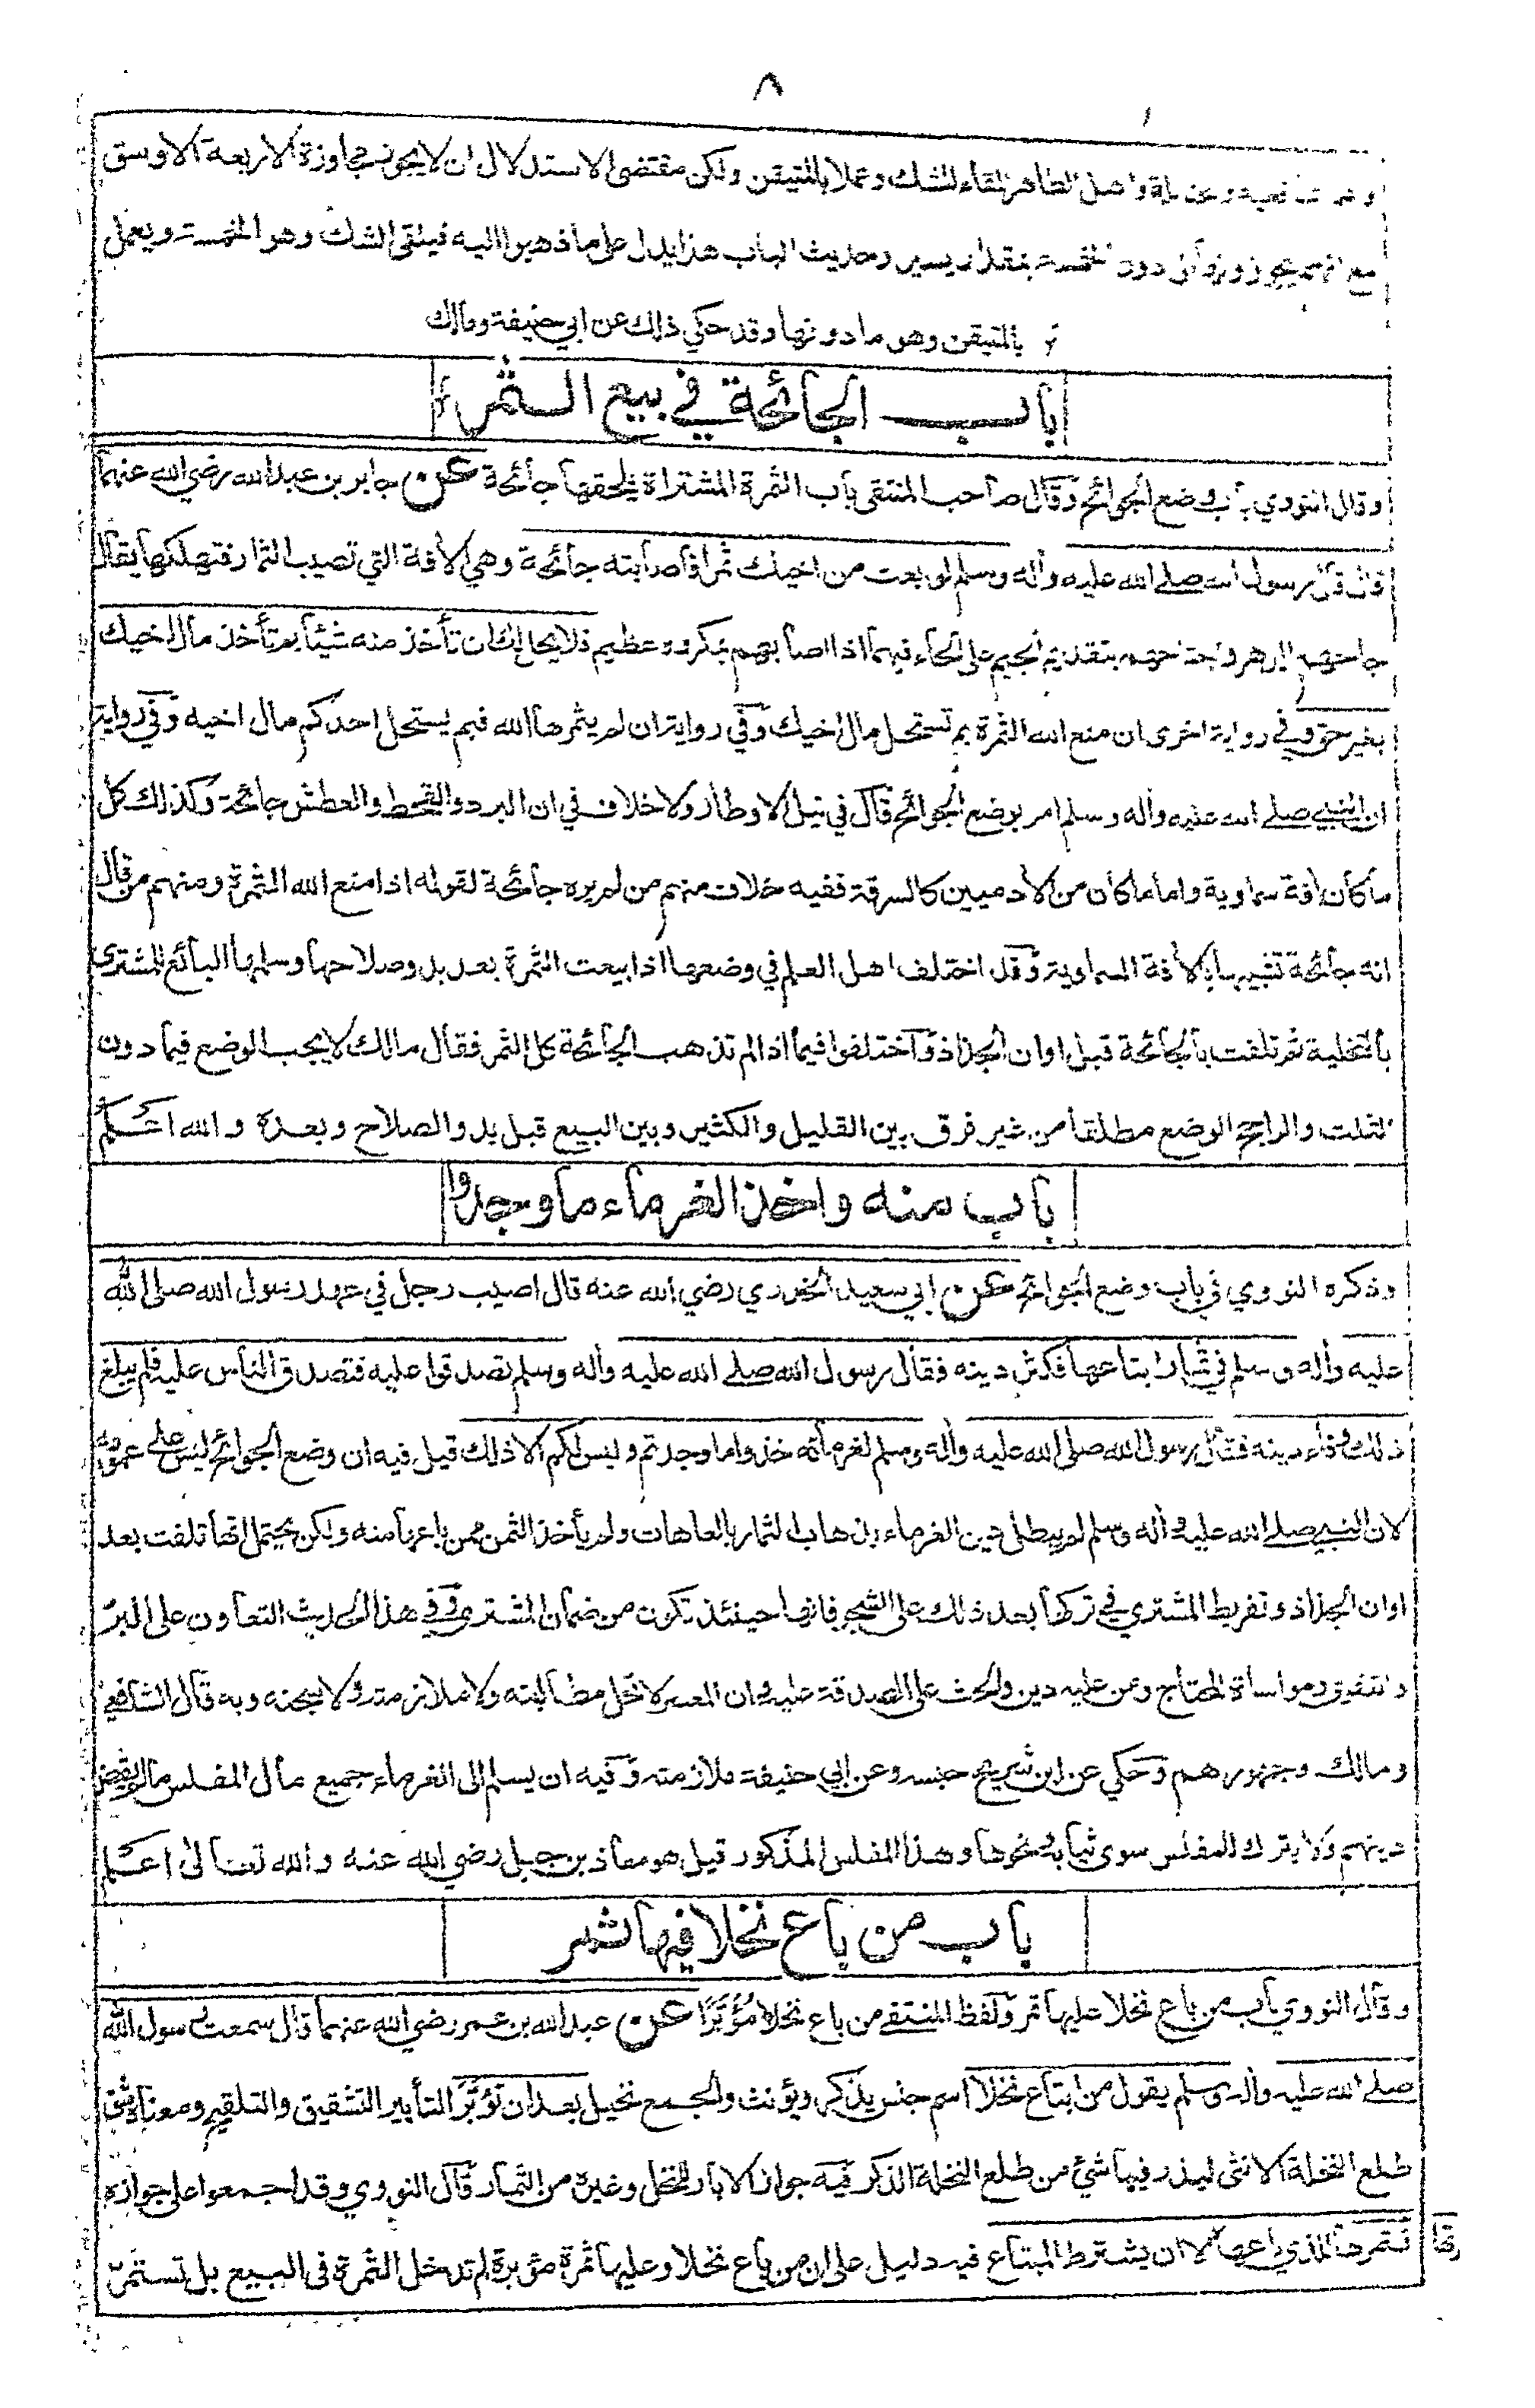 ٨
الظاهر القاء للشك وعملا بالمتيقن ولكن مقتضى الاستدلال ان لا يجوز مجاوزة الاربعة الاوسق
مع انهم يجوزونها الى دون الخمسة بمقدار يسير وحديث الباب هذا يدل على ما ذهبوا اليه فيلقى الشك وهو الخمسة ويعمل
بالمتيقن وهو ما دونها وقد حكي ذلك عن ابي حنيفة ومالك
باب الجائحة في بيع الثمر
وقال النووي باب وضع الجوائح وقال صاحب المنتقى باب الثمرة المشتراة يلحقها جائحة عن جابر بن عبد الله رضي الله عنهما
قال قال رسول الله صلى الله عليه وأله وسلم لو بعت من اخيك ثمرا فأصابته جائحة وهي الأفة التي تصيب الثمار فتهلكها يقال
جاحهم الدهر واجتاحهم بتقديم الجيم على الحاء فيهما اذا اصابهم بمكروه عظيم فلا يحل لك ان تأخذ منه شيئا بم تأخذ مال اخيك
بغير حق وفي رواية اخرى ان منع الله الثمرة بم تستحل مال اخيك وفي رواية ان لم يثمرها الله فبم يستحل احدكم مال اخيه وفي رواية
ان النبي صلى الله عليه وأله وسلم امر بوضع الجوائح قال في نيل الاوطار ولا خلاف في ان البرد والقحط والعطش جائحة وكذلك كل
ما كان أفة سماوية واما ما كان من الأدميين كالسرقة ففيه خلاف منهم من لم يره جائحة لقوله اذا منع الله الثمرة ومنهم من قال
انه جائحة تشبيها بالأفة السماوية وقد اختلف اهل العلم في وضعها اذا بيعت الثمرة بعد بدو صلاحها وسلمها البائع للمشتري
بالتخلية ثم تلفت بالجائحة قبل اوان الجذاذ واختلفوا فيما اذا لم تذهب الجائحة كل الثمر فقال مالك لا يجب الوضع فيما دون
الثلث والراجح الوضع مطلقا من غير فرق بين القليل والكثير وبين البيع قبل بدو الصلاح وبعده والله اعلم
باب منه واخذ الغرماء ما وجدوا
وذكره النووي في باب وضع الجوائح عن ابي سعيد الخدري رضي الله عنه قال اصيب رجل في عهد رسول الله صلى الله
عليه وأله وسلم في ثمار ابتاعها فكثر دينه فقال رسول الله صلى الله عليه وأله وسلم تصدقوا عليه فتصدق الناس عليه فلم يبلغ
ذلك وفاء دينه فقال رسول الله صلى الله عليه وأله وسلم لغرمائه خذوا ما وجدتم وليس لكم الا ذلك قيل فيه ان وضع الجوائح ليس على عمومه
لان النبي صلى الله عليه وأله وسلم لم يبطل دين الغرماء بذهاب الثمار بالعاهات ولم يأخذ الثمن ممن باعها منه ولكن يحتمل انها تلفت بعد
اوان الجذاذ وتفريط المشتري في تركها بعد ذلك على الشجر فانها حينئذ تكون من ضمان المشتري وفي هذا الحديث التعاون على البر
والتقوى ومواساة المحتاج ومن عليه دين والحث على الصدقة عليه وان المعسر لا تحل مطالبته ولا ملازمته ولا سجنه وبه قال الشافعي
ومالك وجمهورهم وحكي عن ابن شريح حبسه وعن ابي حنيفة ملازمته وفيه ان يسلم الى الغرماء جميع مال المفلس ما لم يقض
دينهم ولا يترك للمفلس سوى ثيابه ونحوها وهذا المفلس المذكور قيل هو معاذ بن جبل رضي الله عنه والله تعالى اعلم
باب من باع نخلا فيها ثمر
وقال النووي باب من باع نخلا عليها ثمر ولفظ المنتقى من باع نخلا مُؤَبَّرًا عن عبد الله بن عمر رضي الله عنهما قال سمعت رسول الله
صلى الله عليه وأله وسلم يقول من ابتاع نخلا اسم جنس يذكر ويؤنث والجمع نخيل بعد ان تؤبّر التأبير التشقيق والتلقيح ومعناه شق
طلع النخلة الانثى ليذر فيها شيء من طلع النخلة الذكر فيه جواز الابار للنخل وغيره من الثمار قال النووي وقد اجمعوا على جوازه
فثمرتها للذي باعها الا ان يشترط المبتاع فيه دليل على ان من باع نخلا وعليها ثمرة مؤبرة لم تدخل الثمرة في البيع بل تستمر